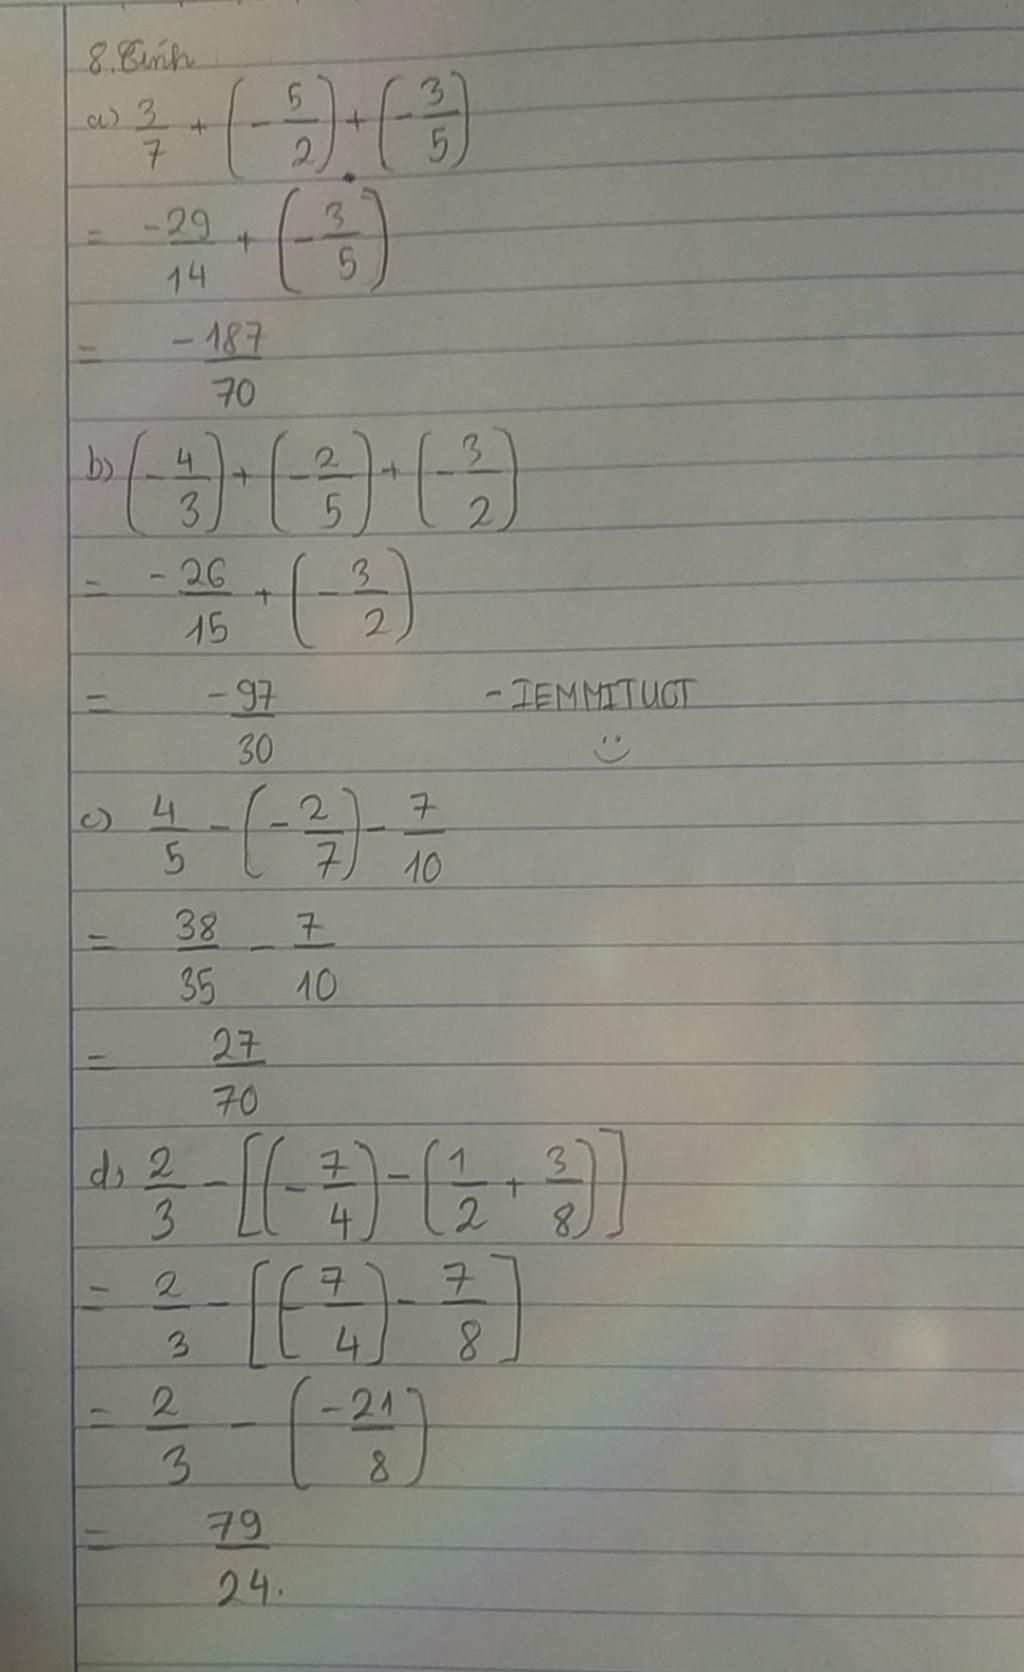 8. Tính
a) 3/7 + (-5/2) + (-3/5)
= -29/14 + (-3/5)
= -187/70
b) (-4/3) + (-2/5) + (-3/2)
= -26/15 + (-3/2)
= -97/30
- IEMMITUCT
c) 4/5 - (-2/7) - 7/10
= 38/35 - 7/10
= 27/70
d) 2/3 - [(-7/4) - (1/2 + 3/8)]
= 2/3 - [(-7/4) - 7/8]
= 2/3 - (-21/8)
= 79/24.